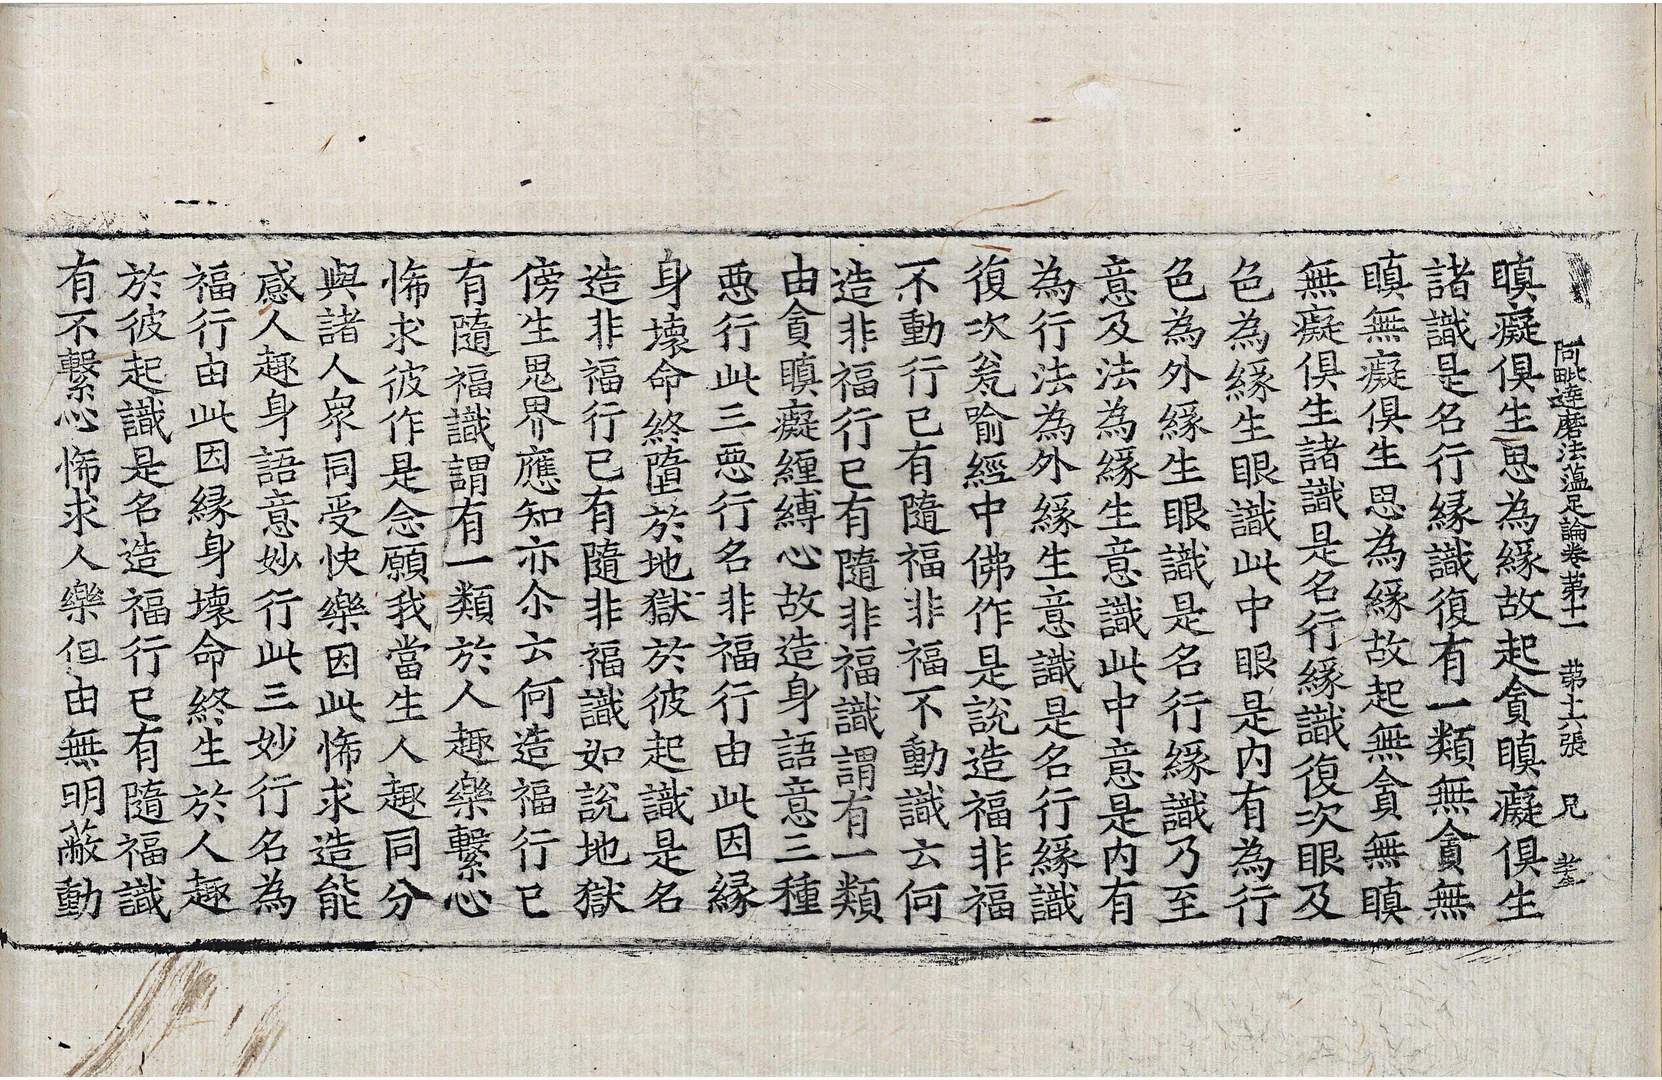 阿毗達磨法蘊足論卷苐十一 苐十六張 兄
瞋癡俱生思為緣故起貪瞋癡俱生
諸識是名行緣識復有一類無貪無
瞋無癡俱生思為緣故起無貪無瞋
無癡俱生諸識是名行緣識復次眼及
色為緣生眼識此中眼是內有為行
色為外緣生眼識是名行緣識乃至
意及法為緣生意識此中意是內有
為行法為外緣生意識是名行緣識
復次瓮喻經中佛作是說造福非福
不動行已有隨福非福不動識云何
造非福行已有隨非福識謂有一類
由貪瞋癡纏縛心故造身語意三種
惡行此三惡行名非福行由此因緣
身壞命終墮於地獄於彼起識是名
造非福行已有隨非福識如說地獄
傍生鬼界應知亦尒云何造福行已
有隨福識謂有一類於人趣樂繫心
悕求彼作是念願我當生人趣同分
與諸人眾同受快樂因此悕求造能
感人趣身語意妙行此三妙行名為
福行由此因緣身壞命終生於人趣
於彼起識是名造福行已有隨福識
有不繫心悕求人樂但由無明蔽動